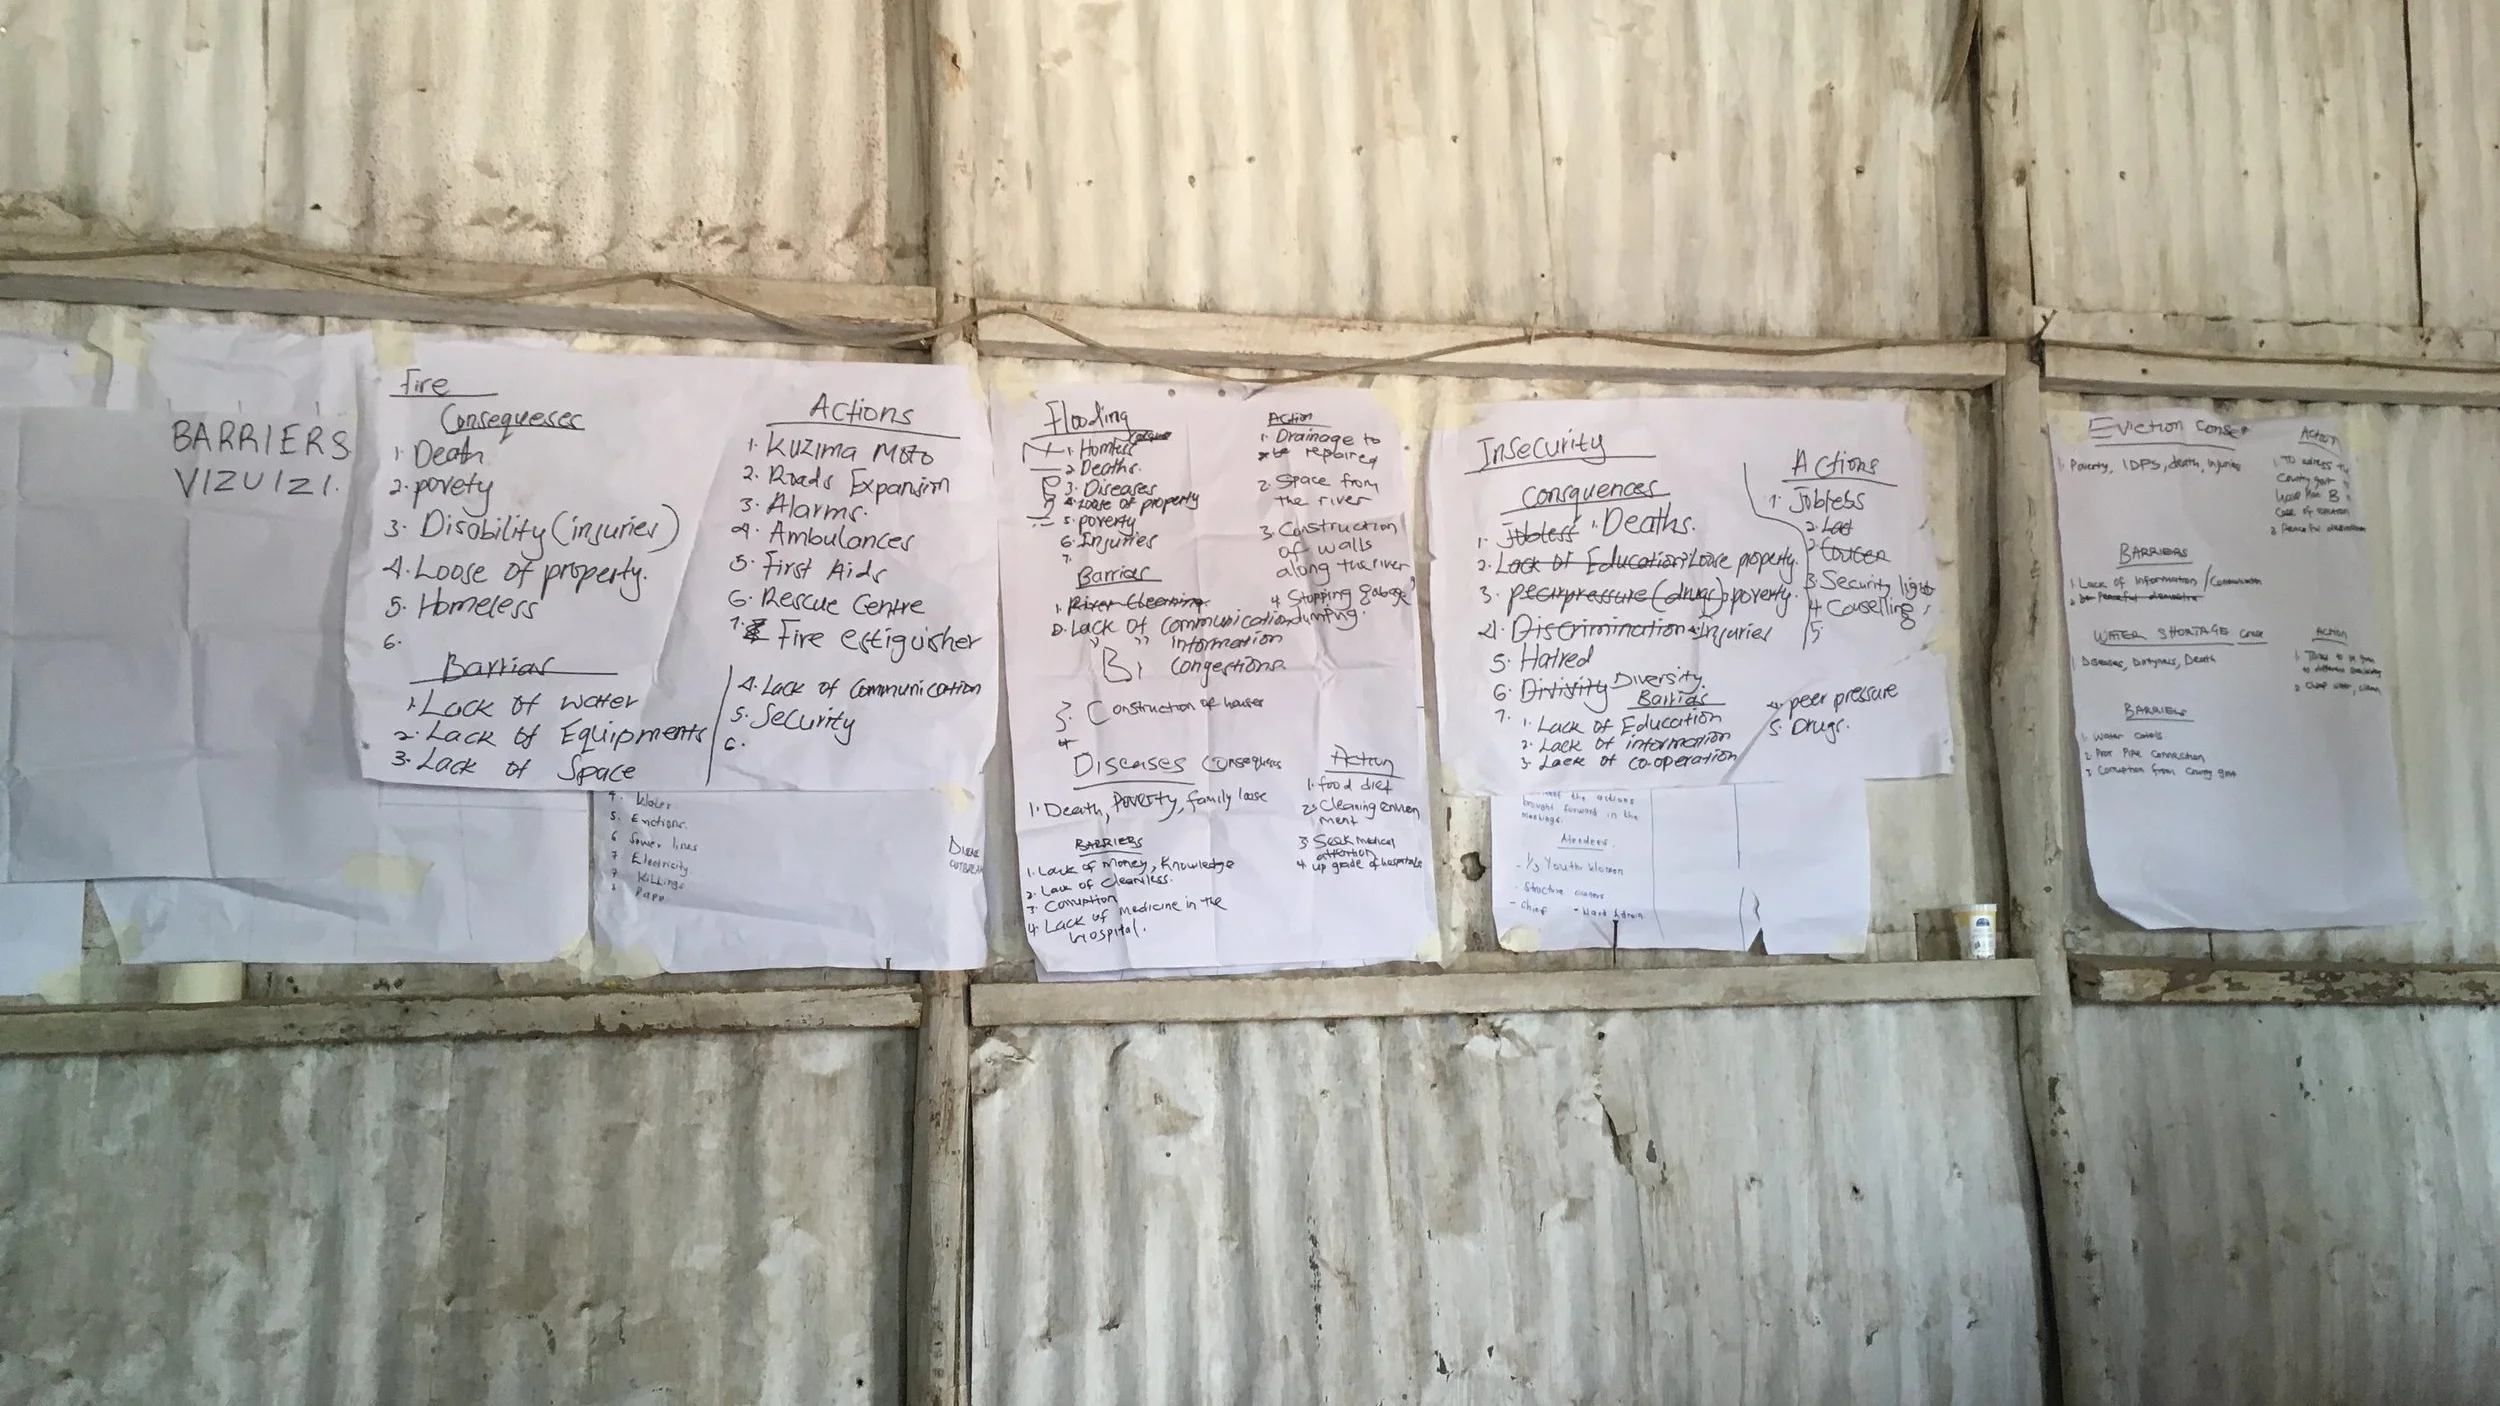 BARRIERS
VIZUIZI.
Fire
Consequeses
1. Death
2. povety
3. Disability (injuries)
4. Loose of property.
5. Homeless
6.
Barrias
1. Lack of water
2. Lack of Equipments
3. Lack of Space
Actions
1. Kuzima Moto
2. Roads Expansion
3. Alarms.
4. Ambulances
5. First Aids
6. Rescue Centre
7. Fire estiguisher
4. Lack of Communication
5. Security
6.
Water
5.
6 Sewer lines
7 Electricity
7 Killings
8 Rape
Flooding
1. Homless
2 Deaths.
3. Diseases
4. Loose of property
5. poverty
6. Injuries
7.
Barrias
1. River Cleaning
2. Lack of Communication
" " Information
Congestions
3. Construction of houses
4
Action
1. Drainage to
be repaired
2. Space from
the river
3. Construction
of walls
along the river
4 Stopping gabage
dumping.
Diseases Conseques
1. Death, Poverty, family loose
BARRIERS
1. Lack of Money, Knowledge
2. Lack of Cleanless.
3. Corruption
4. Lack of medicine in the
Hospital.
Action
1. food diet
2. Cleaning enviro
ment
3. Seek medical
attention
4. up grade of hospitals
Insecurity
Consquences
1. Jobless 1. Deaths.
2. Lack of Education Loose property.
3. peerpressure (drugs) poverty.
4. Discrimination Injuries
5. Hatred
6. Divisity Diversity.
7.
Barrias
1. Lack of Education
2. Lack of information
3. Lack of co-operation
Actions
1. Jobless
2. Lact
3. Security light
4 Couselling
5.
4. peer pressure
5. Drugs.
the actions
brought forward in the
meetings.
Atendees
- 1/3 Youth Women
- Structure owners
- Chief - Ward Admin
Eviction Conse
1. Poverty, IDPS, death, injuries
Action
County govt
BARRIERS
1. Lack of Information /
2. Peaceful
WATER SHORTAGE Conse
1. Diseases, Dirtyness, Death
Action
BARRIERS
1. Water Catels
2. Poor Pipe Connection
3 Corruption from County govt